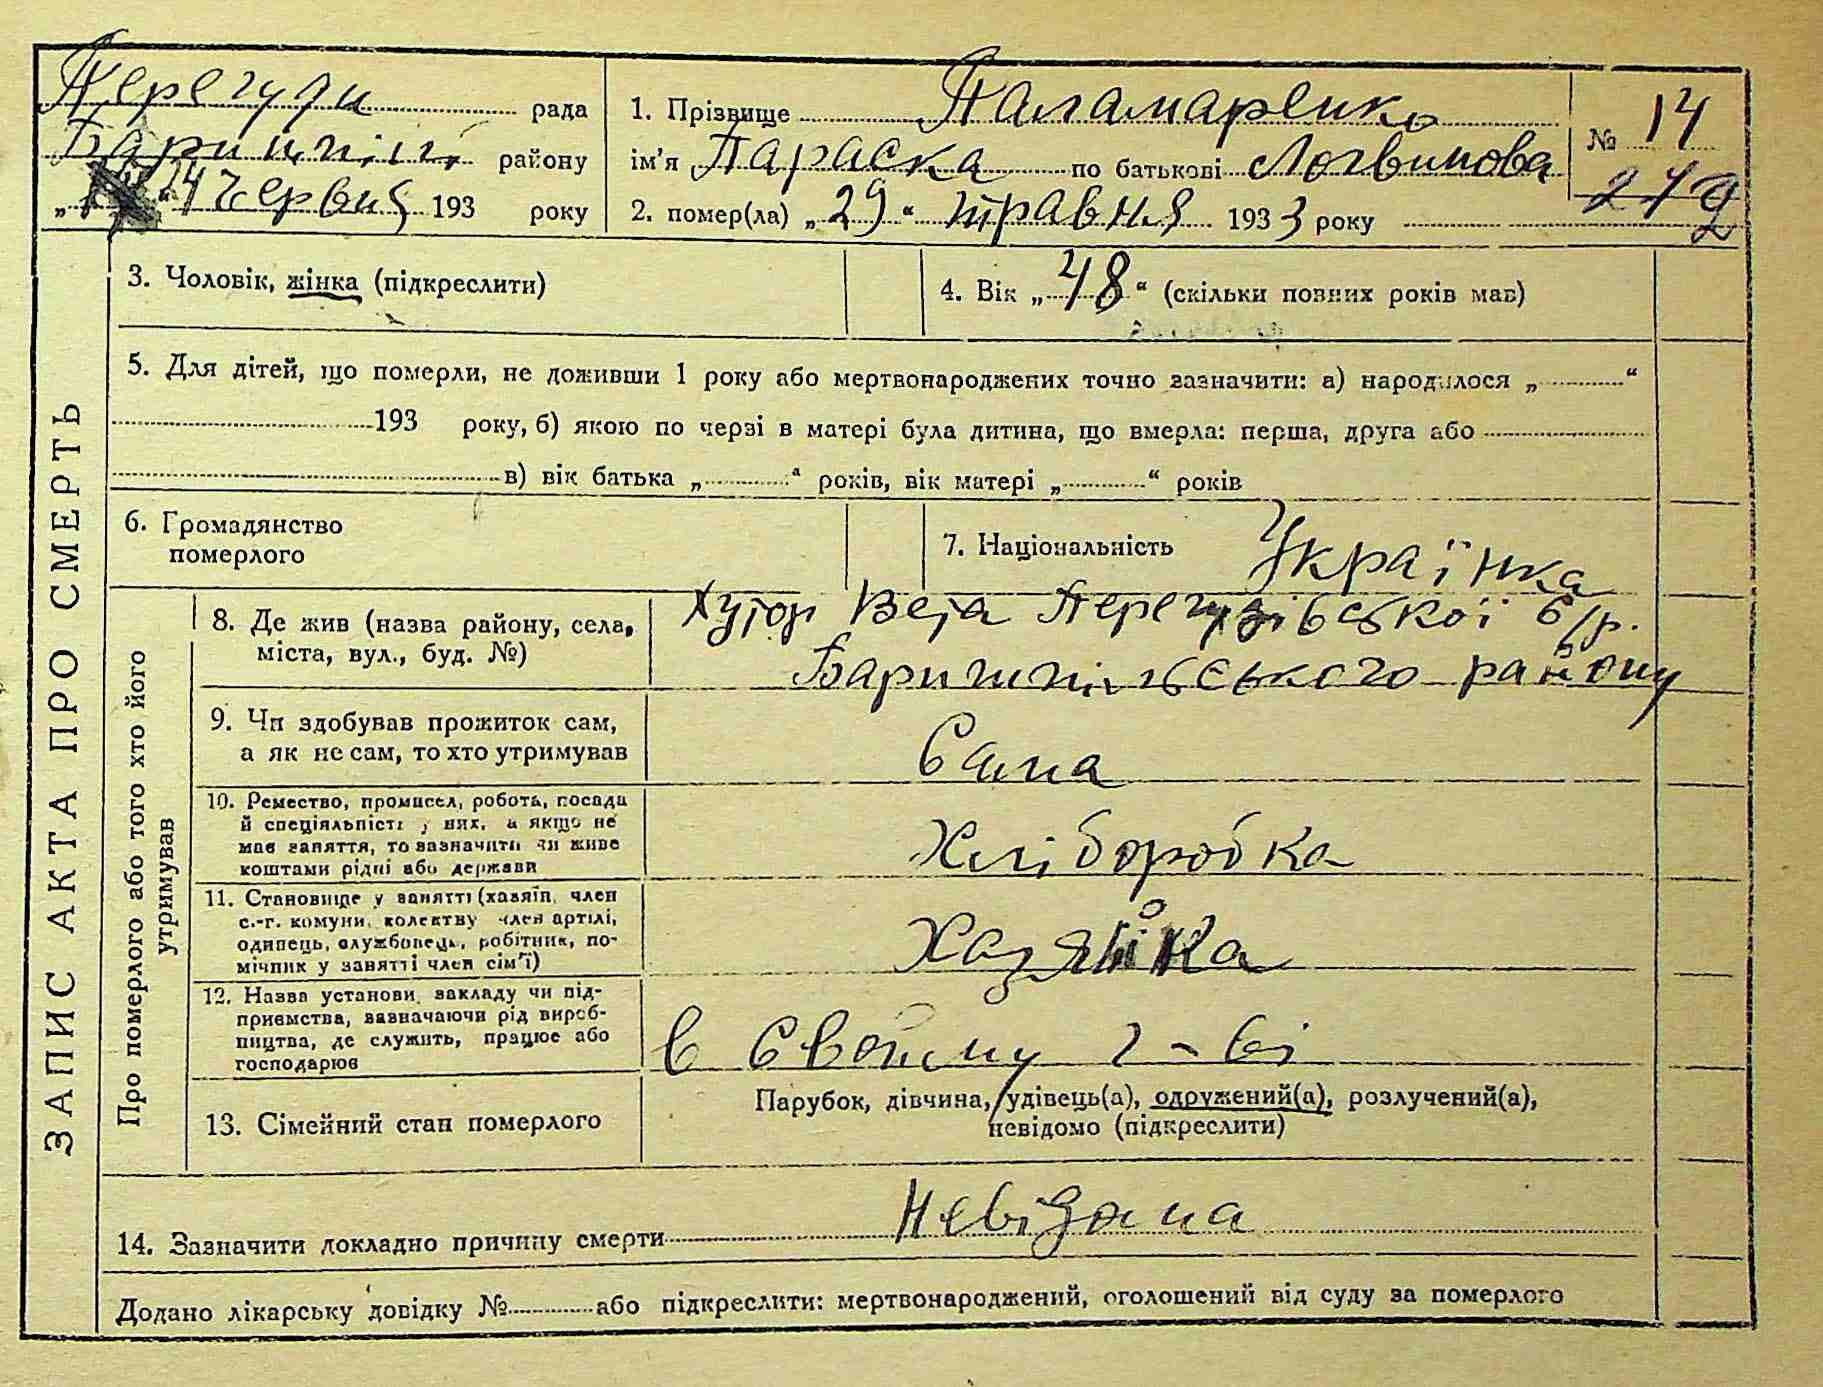 Перегуди рада
Баришпіл. району
„ “ 14 Червня 193 року
1. Прізвище Паламаренко
ім'я Параска по батькові Логвинова
2. помер(ла) „29“ травня 1933 року
№ 14
272
ЗАПИС АКТА ПРО СМЕРТЬ
3. Чоловік, жінка (підкреслити)
4. Вік „48“ (скільки повних років мав)
5. Для дітей, що померли, не доживши 1 року або мертвонароджених точно зазначити: а) народилося „ “
193 року, б) якою по черзі в матері була дитина, що вмерла: перша, друга або
в) вік батька „ “ років, вік матері „ “ років
6. Громадянство
померлого
7. Національність Українка
Про померлого або того хто його
утримував
8. Де жив (назва району, села,
міста, вул., буд. №)
Хутор Вета Перегудівської с/р.
Баришпільського району
9. Чи здобував прожиток сам,
а як не сам, то хто утримував
Сама
10. Ремество, промисел, робота, посада
й спеціяльність у них, а якщо не
має заняття, то зазначити чи живе
коштами рідні або держави
Хліборобка
11. Становище у занятті (хазяїн, член
с.-г. комуни, колективу член артілі,
одинець, службовець, робітник, по-
мічник у занятті член сім'ї)
Хазяйка
12. Назва установи, закладу чи під-
приємства, зазначаючи рід вироб-
ництва, де служить, працює або
господарює
в свойому г-ві
13. Сімейний стан померлого
Парубок, дівчина, удівець(а), одружений(а), розлучений(а),
невідомо (підкреслити)
14. Зазначити докладно причину смерти Невідома
Додано лікарську довідку № або підкреслити: мертвонароджений, оголошений від суду за померлого